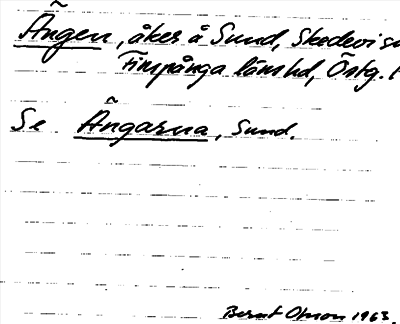 Ängen, åker å Sund, Skedevi sn
Finspånga länshd, Östg.
Se Ängarna, Sund.
Bernt Olsson 1963.